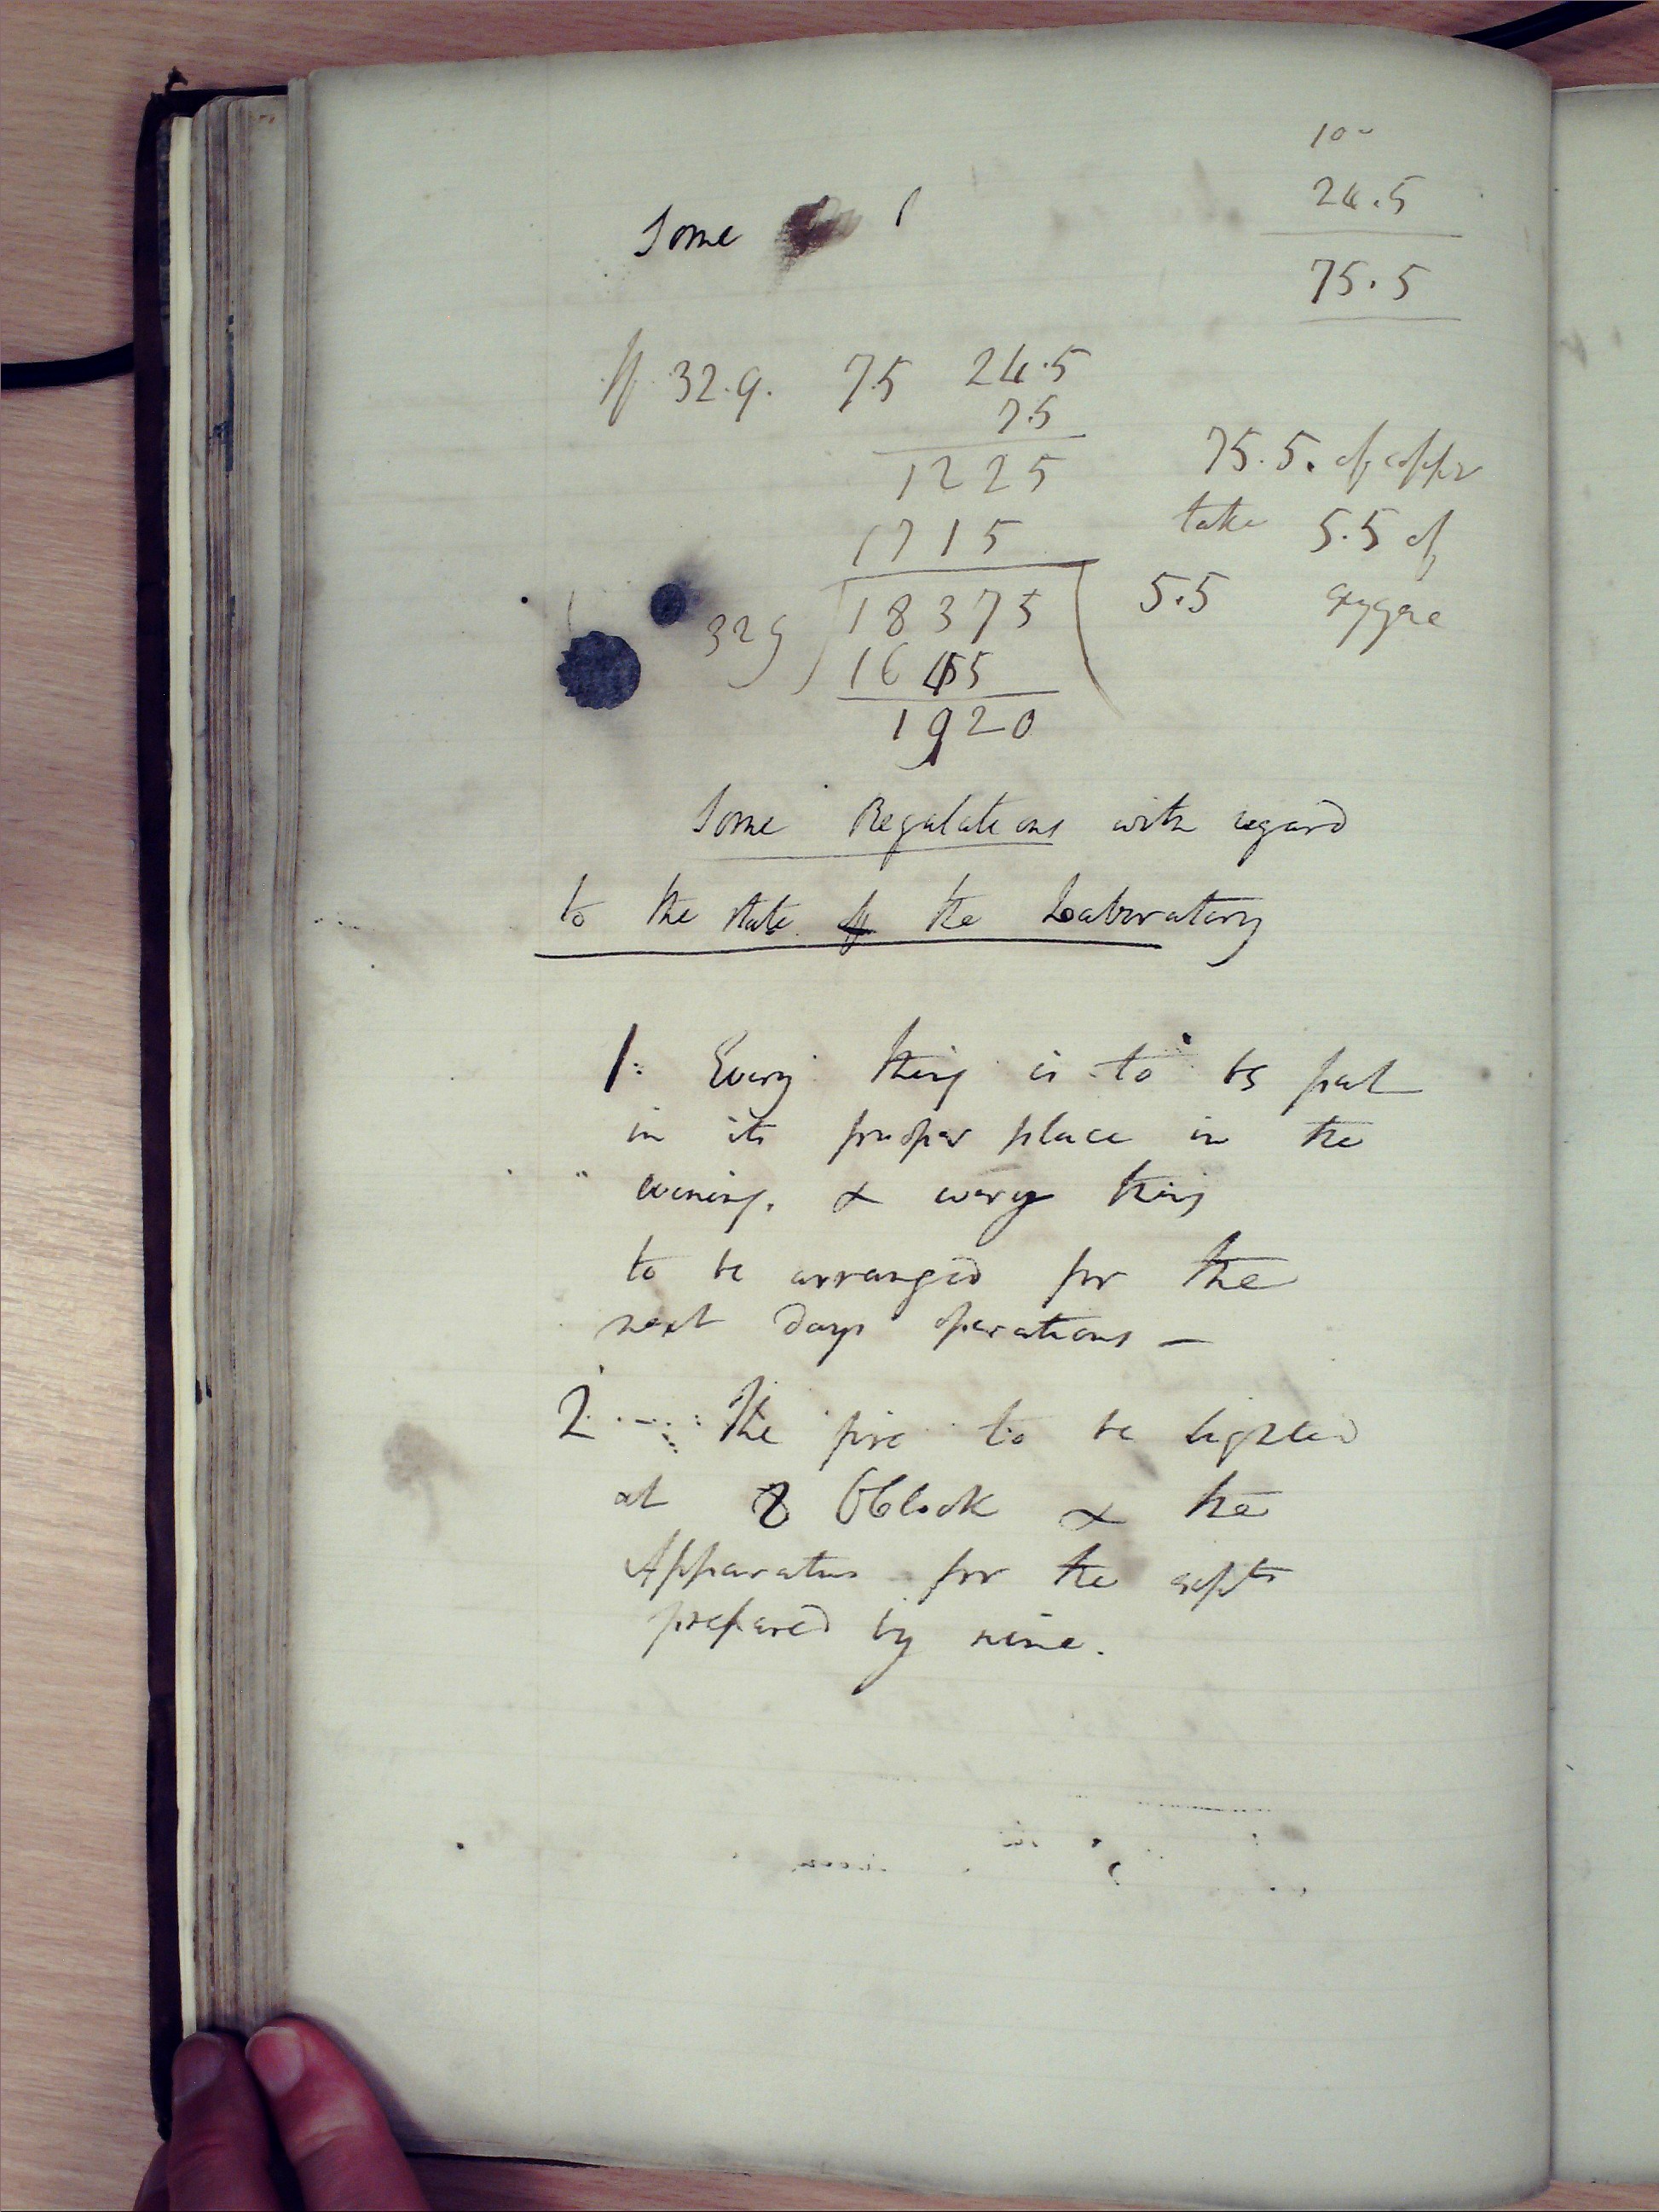 100
24.5
75.5
Some
If 32.9. 7.5 24.5
7.5
1225
1715
75.5. of copper
take 5.5 of
oxygene
329) 18375 ( 5.5
1645
1920
Some Regulations with regard
to the state of the Laboratory
1. Every thing is to be put
in its proper place in the
evening. & every thing
to be arranged for the
next days operations —
2. The fire to be lighted
at 8 OClock & the
Apparatus for the expts
prepared by nine.